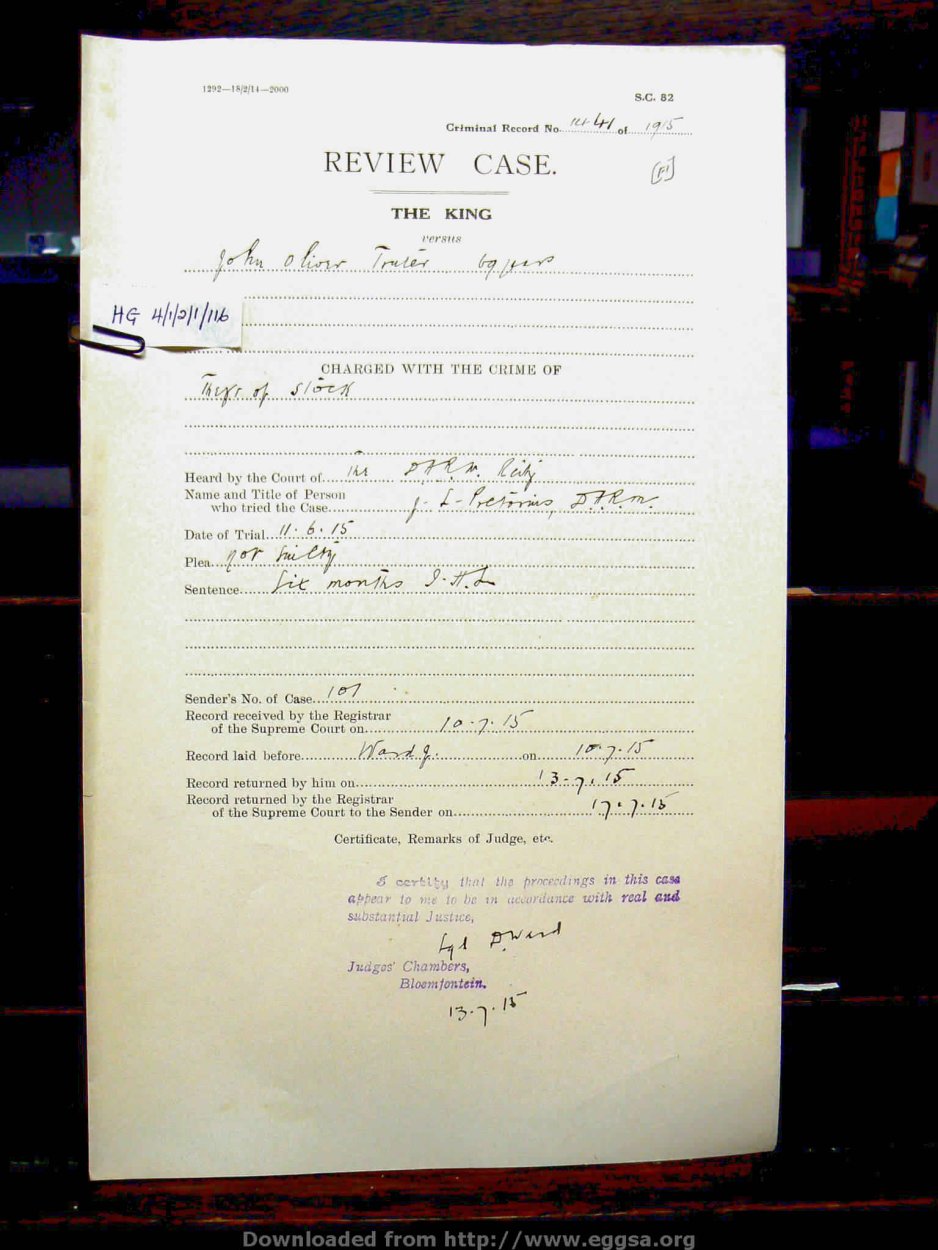 1292—18/2/14—2000
S.C. 82
Criminal Record No. of 1915
REVIEW CASE.
[F1]
THE KING
versus
John Oliver Truter 69 years
HG 4/1/2/1/116
CHARGED WITH THE CRIME OF
Theft of Stock
Heard by the Court of the D.A.R.M. Reitz
Name and Title of Person
who tried the Case J. L. Pretorius, D.A.R.M.
Date of Trial 11.6.15
Plea Not Guilty
Sentence Six months I.H.L
Sender's No. of Case 101
Record received by the Registrar
of the Supreme Court on 10.7.15
Record laid before Ward J. on 10.7.15
Record returned by him on 13-7.15
Record returned by the Registrar
of the Supreme Court to the Sender on 17.7.15
Certificate, Remarks of Judge, etc.
I certify that the proceedings in this case
appear to me to be in accordance with real and
substantial Justice,
Sgd D Ward
Judges' Chambers,
Bloemfontein.
13.7.15
Downloaded from http://www.eggsa.org